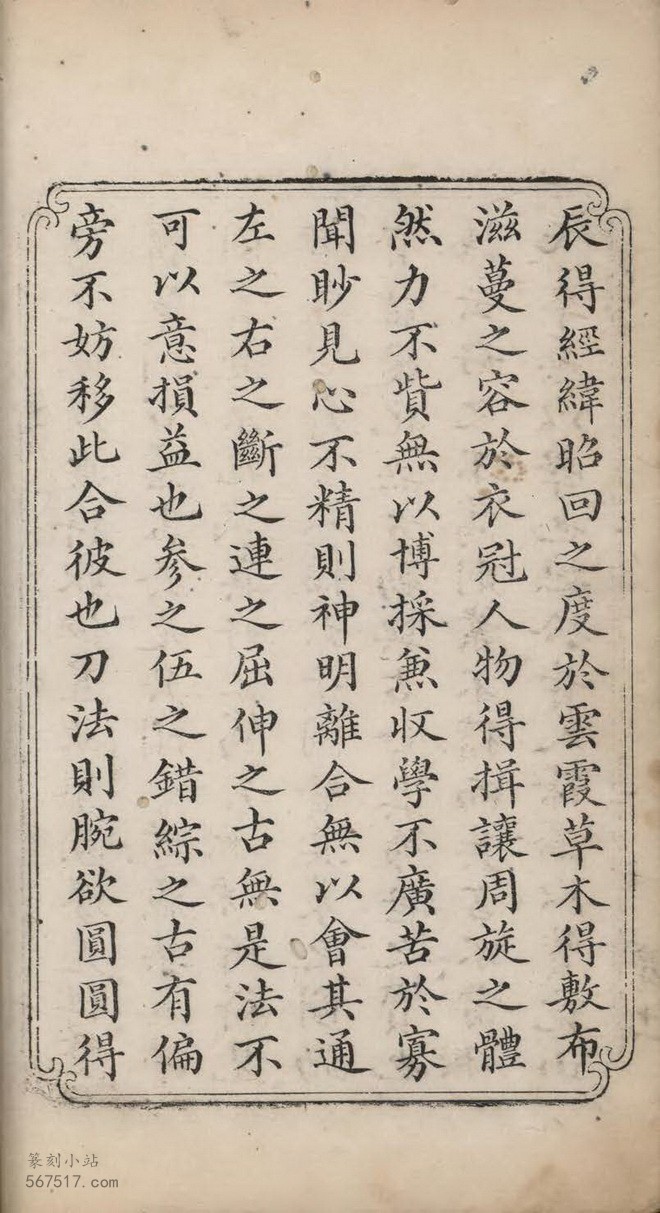 辰得經緯昭回之度於雲霞草木得敷布
滋蔓之容於衣冠人物得揖讓周旋之體
然力不貲無以博採兼収學不廣苦於寡
聞眇見心不精則神明離合無以會其通
左之右之斷之連之屈伸之古無是法不
可以意損益也参之伍之錯綜之古有偏
旁不妨移此合彼也刀法則腕欲圓圓得
篆刻小站
567517.com